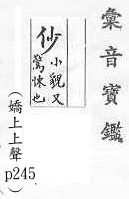 彙音寶鑑
仯
小貌又
驚悚也
（嬌上上聲）
p245